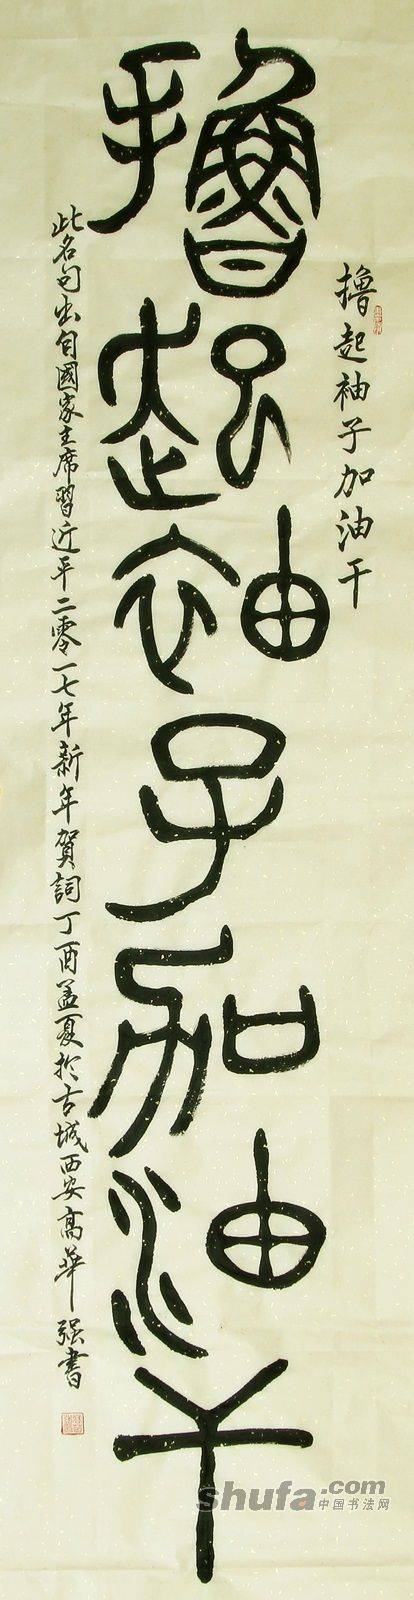 撸起袖子加油干
撸起袖子加油干
此名句出自國家主席習近平二零一七年新年賀詞丁酉孟夏於古城西安高華强書
shufa.com
中国书法网